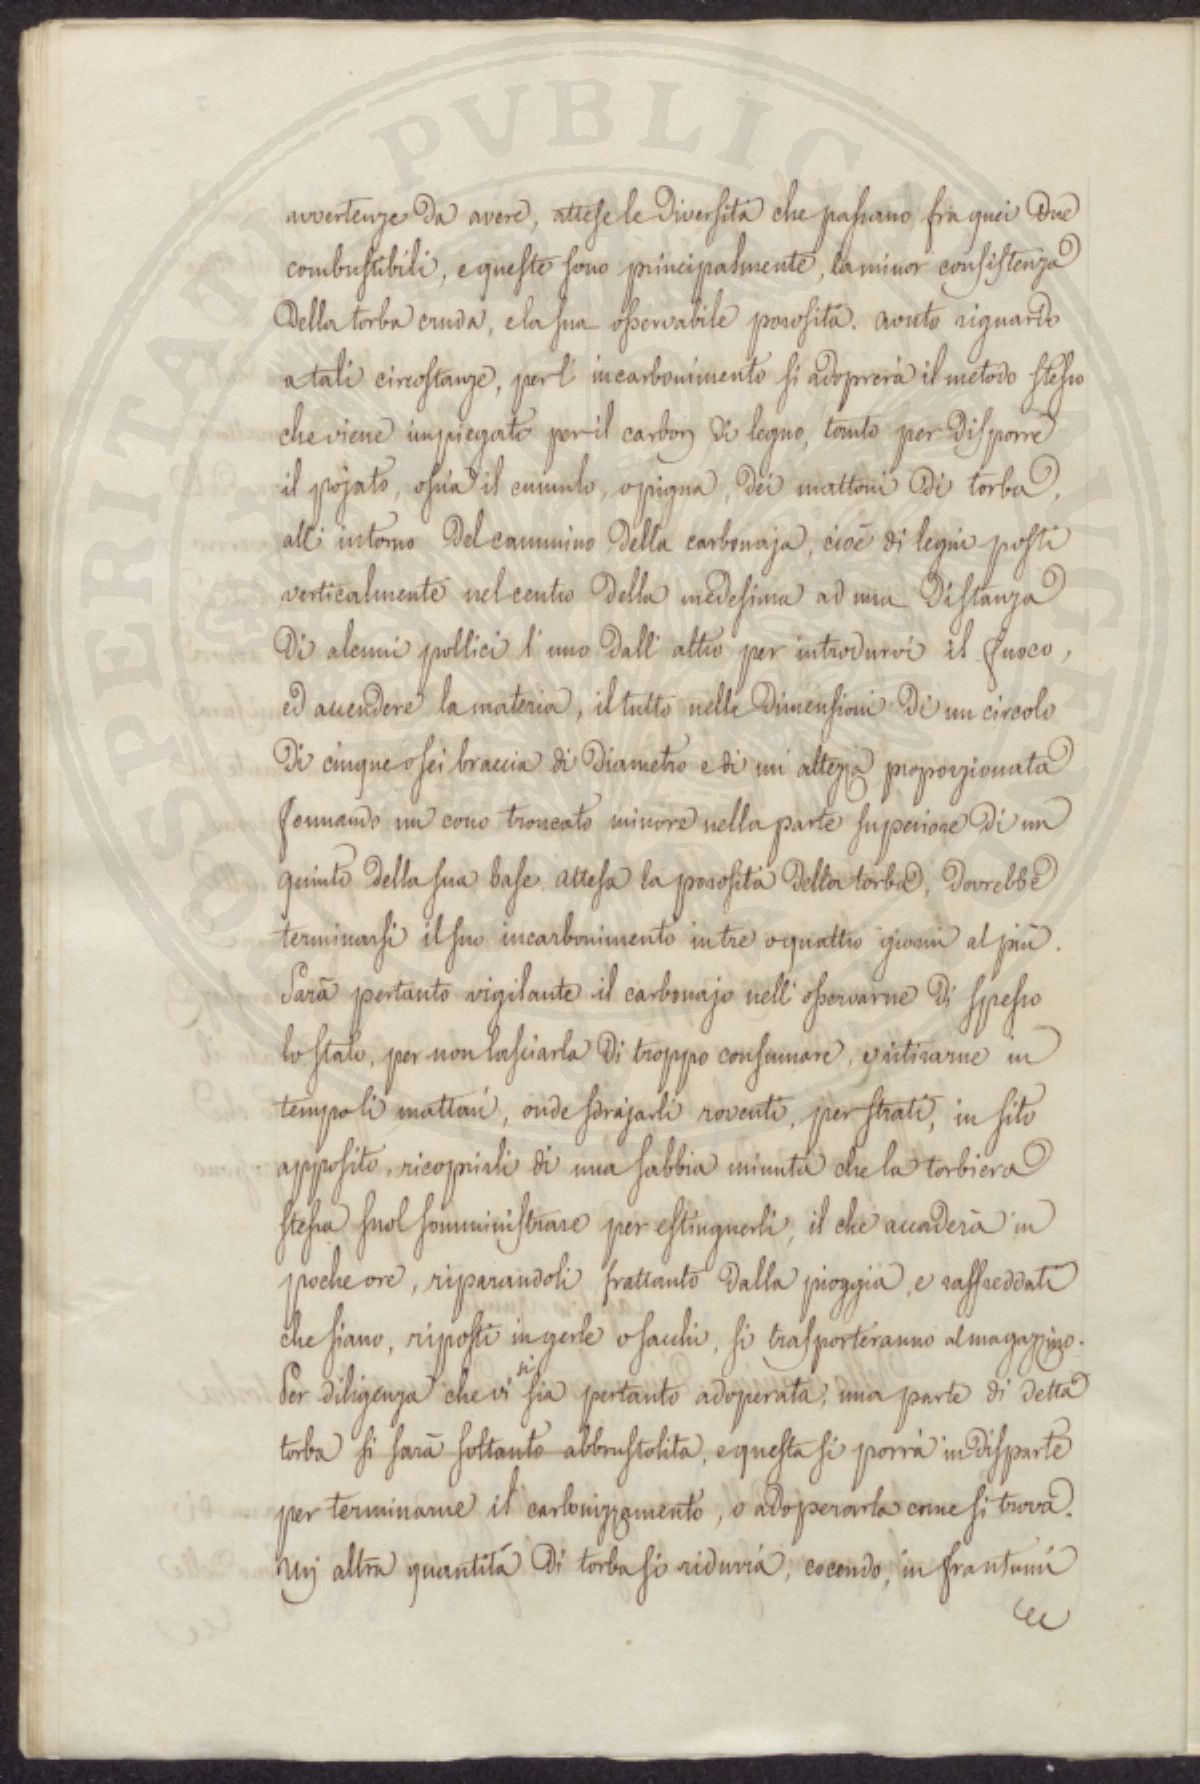 PVBLICAE
PROSPERITATI
avvertenze da avere, attese le diversità che passano fra quei due
combustibili, e queste sono principalmente, la minor consistenza
della torba cruda, e la sua osservabile porosità. avuto riguardo
a tali circostanze, per l'incarbonimento si adoprerà il metodo stesso
che viene impiegato per il carbon di legno, tanto per disporre
il pojato, ossia il cumulo, o pigna, dei mattoni di torba,
all'intorno del cammino della carbonaja, cioè di legni posti
verticalmente nel centro della medesima ad una distanza
di alcuni pollici l'uno dall'altro per introdurvi il fuoco,
ed accendere la materia, il tutto nelle dimensioni di un circolo
di cinque o sei braccia di diametro e di un'altezza proporzionata
formando un cono troncato minore nella parte superiore di un
quinto della sua base. attesa la porosità della torba, dovrebbe
terminarsi il suo incarbonimento in tre o quattro giorni al più.
Sarà pertanto vigilante il carbonajo nell'osservarne di spesso
lo stato, per non lasciarla di troppo consumare, e ritirarne in
tempo li mattoni, onde sdrajarli roventi, per strati, in sito
apposito, ricoprirli di una sabbia minuta che la torbiera
stessa suol somministrare per estinguerli, il che accaderà in
poche ore, riparandoli frattanto dalla pioggia, e raffreddati
che siano, riposti in gerle o sacchi, si trasporteranno al magazzino.
Per diligenza che vi si sia pertanto adoperata, una parte di detta
torba si sarà soltanto abbrustolita, e questa si porrà in disparte
per terminarne il carbonizzamento, o adoperarla come si trova.
Un altra quantità di torba si ridurrà, cocendo, in frantumi